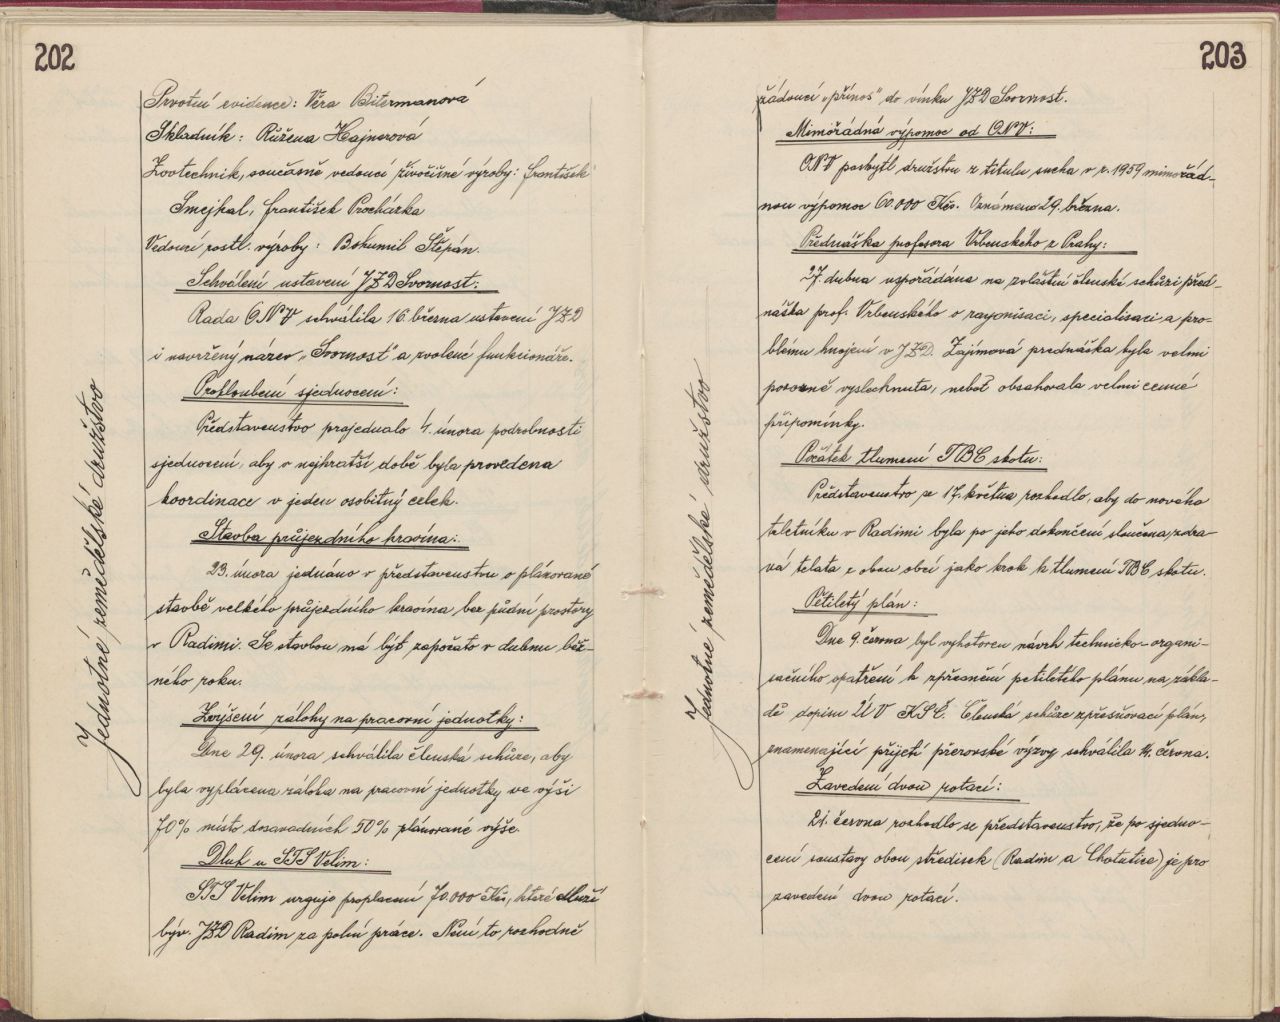 202
Jednotné zemědělské družstvo
Prvotní evidence: Věra Bitermanová
Skladník: Růžena Hajnerová
Zootechnik, současně vedoucí živočišné výroby: František
Smejkal, František Procházka
Vedoucí rostl. výroby: Bohumil Štěpán.
Schválení ustavení JZD Svornost:
Rada ONV schválila 16. března ustavení JZD
i navržený název "Svornost" a zvolené funkcionáře.
Prohloubení sjednocení:
Představenstvo projednalo 4. února podrobnosti
sjednocení, aby v nejkratší době byla provedena
koordinace v jeden osobitný celek.
Stavba průjezdního kravína:
23. února jednáno v představenstvu o plánované
stavbě velkého průjezdního kravína bez půdní prostory
v Radimi. Se stavbou má být započato v dubnu běž-
ného roku.
Zvýšení zálohy na pracovní jednotky:
Dne 29. února schválila členská schůze, aby
byla vyplácena záloha na pracovní jednotky ve výši
70% místo dosavadních 50% plánované výše.
Dluh u STS Velim:
STS Velim urguje proplacení 70.000 Kčs, které dluží
býv. JZD Radim za polní práce. Není to rozhodně
203
Jednotné zemědělské družstvo
žádoucí "přínos" do vínku JZD Svornost.
Mimořádná výpomoc od ONV:
ONV poskytl družstvu z titulu sucha v r. 1959 mimořád-
nou výpomoc 60.000 Kčs. Oznámeno 29. března.
Přednáška profesora Vrbenského z Prahy:
27. dubna uspořádána na zvláštní členské schůzi před-
náška prof. Vrbenského o rayonisaci, specialisaci, a pro-
blému hnojení v JZD. Zajímavá prednáška byla velmi
pozorně vyslechnuta, neboť obsahovala velmi cenné
připomínky.
Počátek tlumení TBC skotu:
Představenstvo se 17. května rozhodlo, aby do nového
teletníku v Radimi byla po jeho dokončení sloučena zdra-
vá telata z obou obcí jako krok k tlumení TBC skotu.
Pětiletý plán:
Dne 9. června byl vyhotoven návrh technicko-organi-
sačního opatření k zpřesnění petiletého plánu na zákla-
dě dopisu ÚV KSČ. Členská schůze zpřesňovací plán,
znamenající přijetí přerovské výzvy schválila 14. června.
Zavedení dvou rotací:
21. června rozhodlo se představenstvo, že po sjedno-
cení soustavy obou středisek (Radim a Chotutice) je pro
zavedení dvou rotací.